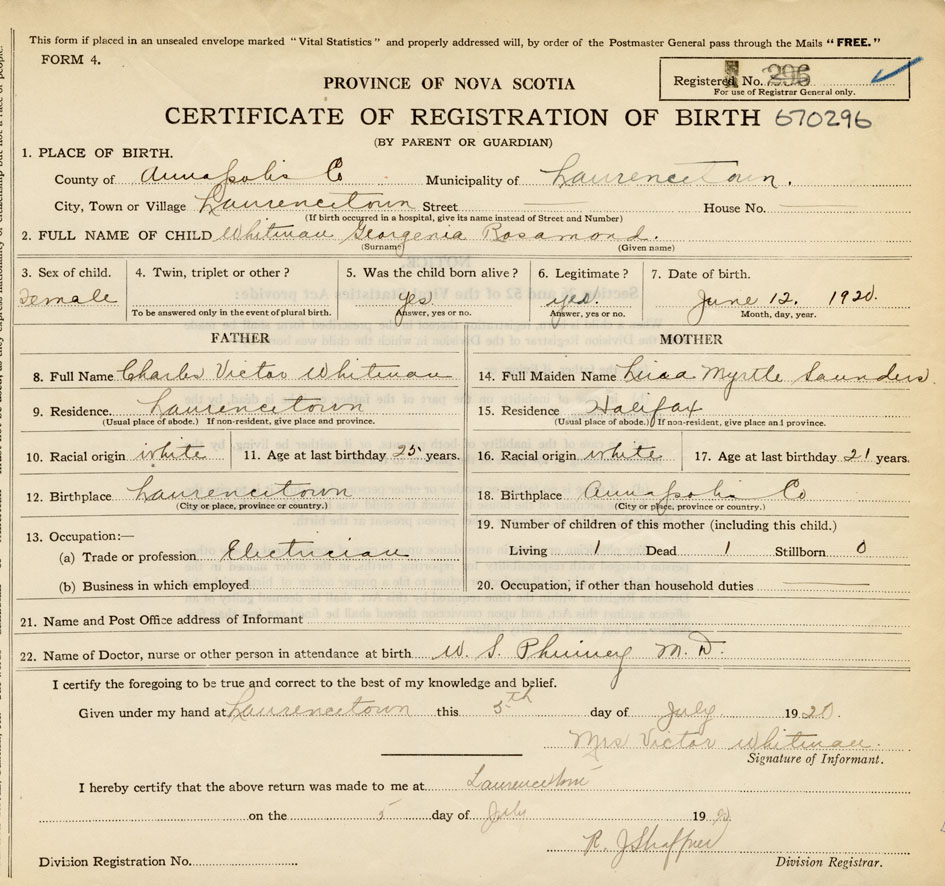 This form if placed in an unsealed envelope marked "Vital Statistics" and properly addressed will, by order of the Postmaster General pass through the Mails "FREE."
FORM 4.
Registered No. 296
For use of Registrar General only.
PROVINCE OF NOVA SCOTIA
CERTIFICATE OF REGISTRATION OF BIRTH 670296
(BY PARENT OR GUARDIAN)
1. PLACE OF BIRTH.
County of Annapolis Co Municipality of Laurencetown.
City, Town or Village Laurencetown Street House No.
(If birth occurred in a hospital, give its name instead of Street and Number)
2. FULL NAME OF CHILD Whitman Georgenia Rosamond.
(Surname) (Given name)
3. Sex of child. 4. Twin, triplet or other? 5. Was the child born alive? 6. Legitimate? 7. Date of birth.
Female yes yes. June 12. 1920.
To be answered only in the event of plural birth. Answer, yes or no. Answer, yes or no. Month, day, year.
FATHER MOTHER
8. Full Name Charles Victor Whitman 14. Full Maiden Name Myrtle Saunders.
9. Residence. Laurencetown 15. Residence Halifax
(Usual place of abode.) If non-resident, give place and province. (Usual place of abode.) If non-resident, give place and province.
10. Racial origin white 11. Age at last birthday 25 years. 16. Racial origin white 17. Age at last birthday 21 years.
12. Birthplace Laurencetown 18. Birthplace Annapolis Co
(City or place, province or country.) (City or place, province or country.)
13. Occupation:— 19. Number of children of this mother (including this child.)
(a) Trade or profession Electrician Living 1 Dead 1 Stillborn 0
(b) Business in which employed 20. Occupation, if other than household duties
21. Name and Post Office address of Informant
22. Name of Doctor, nurse or other person in attendance at birth W. S. Phinney M. D.
I certify the foregoing to be true and correct to the best of my knowledge and belief.
Given under my hand at Laurencetown this 5th day of July 1920.
Mrs Victor Whitman.
Signature of Informant.
I hereby certify that the above return was made to me at Laurencetown
on the 5 day of July 19
R. J Shaffner
Division Registration No. Division Registrar.